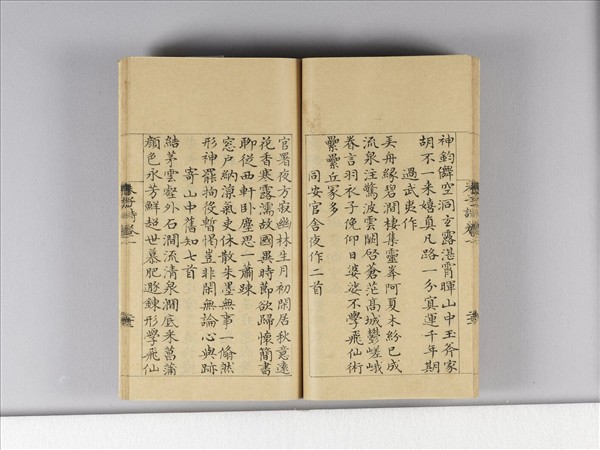 神鈞儛空洞玄露湛霄暉山中玉斧家
胡不一來嬉真凡路一分冥運千年期
過武夷作
弄舟緣碧澗棲集靈峯阿夏木紛已成
流泉注驚波雲闕啓蒼茫高城鬱嵯峨
眷言羽衣子俛仰日婆娑不學飛仙術
纍纍丘冢多
同安官舍夜作二首
官署夜方寂幽林生月初閑居秋意遠
花香寒露濡故國異時節欲歸懷簡書
聊從西軒臥塵思一蕭疎
窓户納涼氣吏休散朱墨無事一翛然
形神罷拘役暫愒豈非閑無論心與跡
寄山中舊知七首
結茅雲壑外石澗流清泉澗底采菖蒲
顏色永芳鮮超世慕肥遯鍊形學飛仙